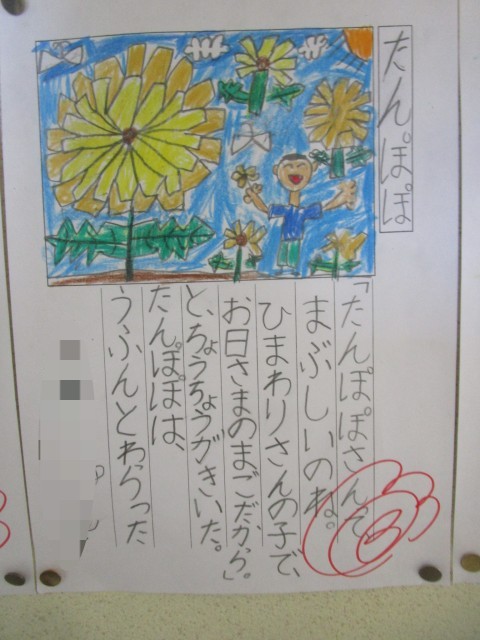 たんぽぽ
「たんぽぽさんて
まぶしいのね。
ひまわりさんの子で、
お日さまのまごだから。」
と、ちょうちょうがきいた。
たんぽぽは、
うふんとわらった